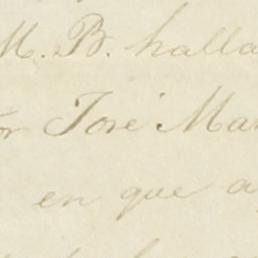 M. B. halla
or José Mar
en que a